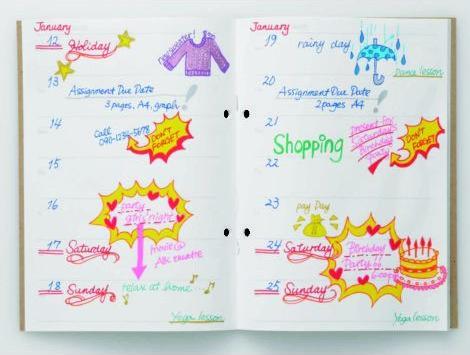 January
12 Holiday
13
Assignment Due Date
3 pages, A4, graph!
14
Call
090-1234-5678
DON'T
FORGET
15
16
party
girls' night
17 Saturday
movie @
ABC theatre
18 Sunday
relax at home...
Yoga lesson
January
19
rainy day
Dance lesson
20
Assignment Due Date
2 pages A4!
21
Present For
Saturday
Birthday
Party
DON'T
FORGET
Shopping
22
23
pay Day
24 Saturday
Birthday
Party
25 Sunday
Yoga lesson